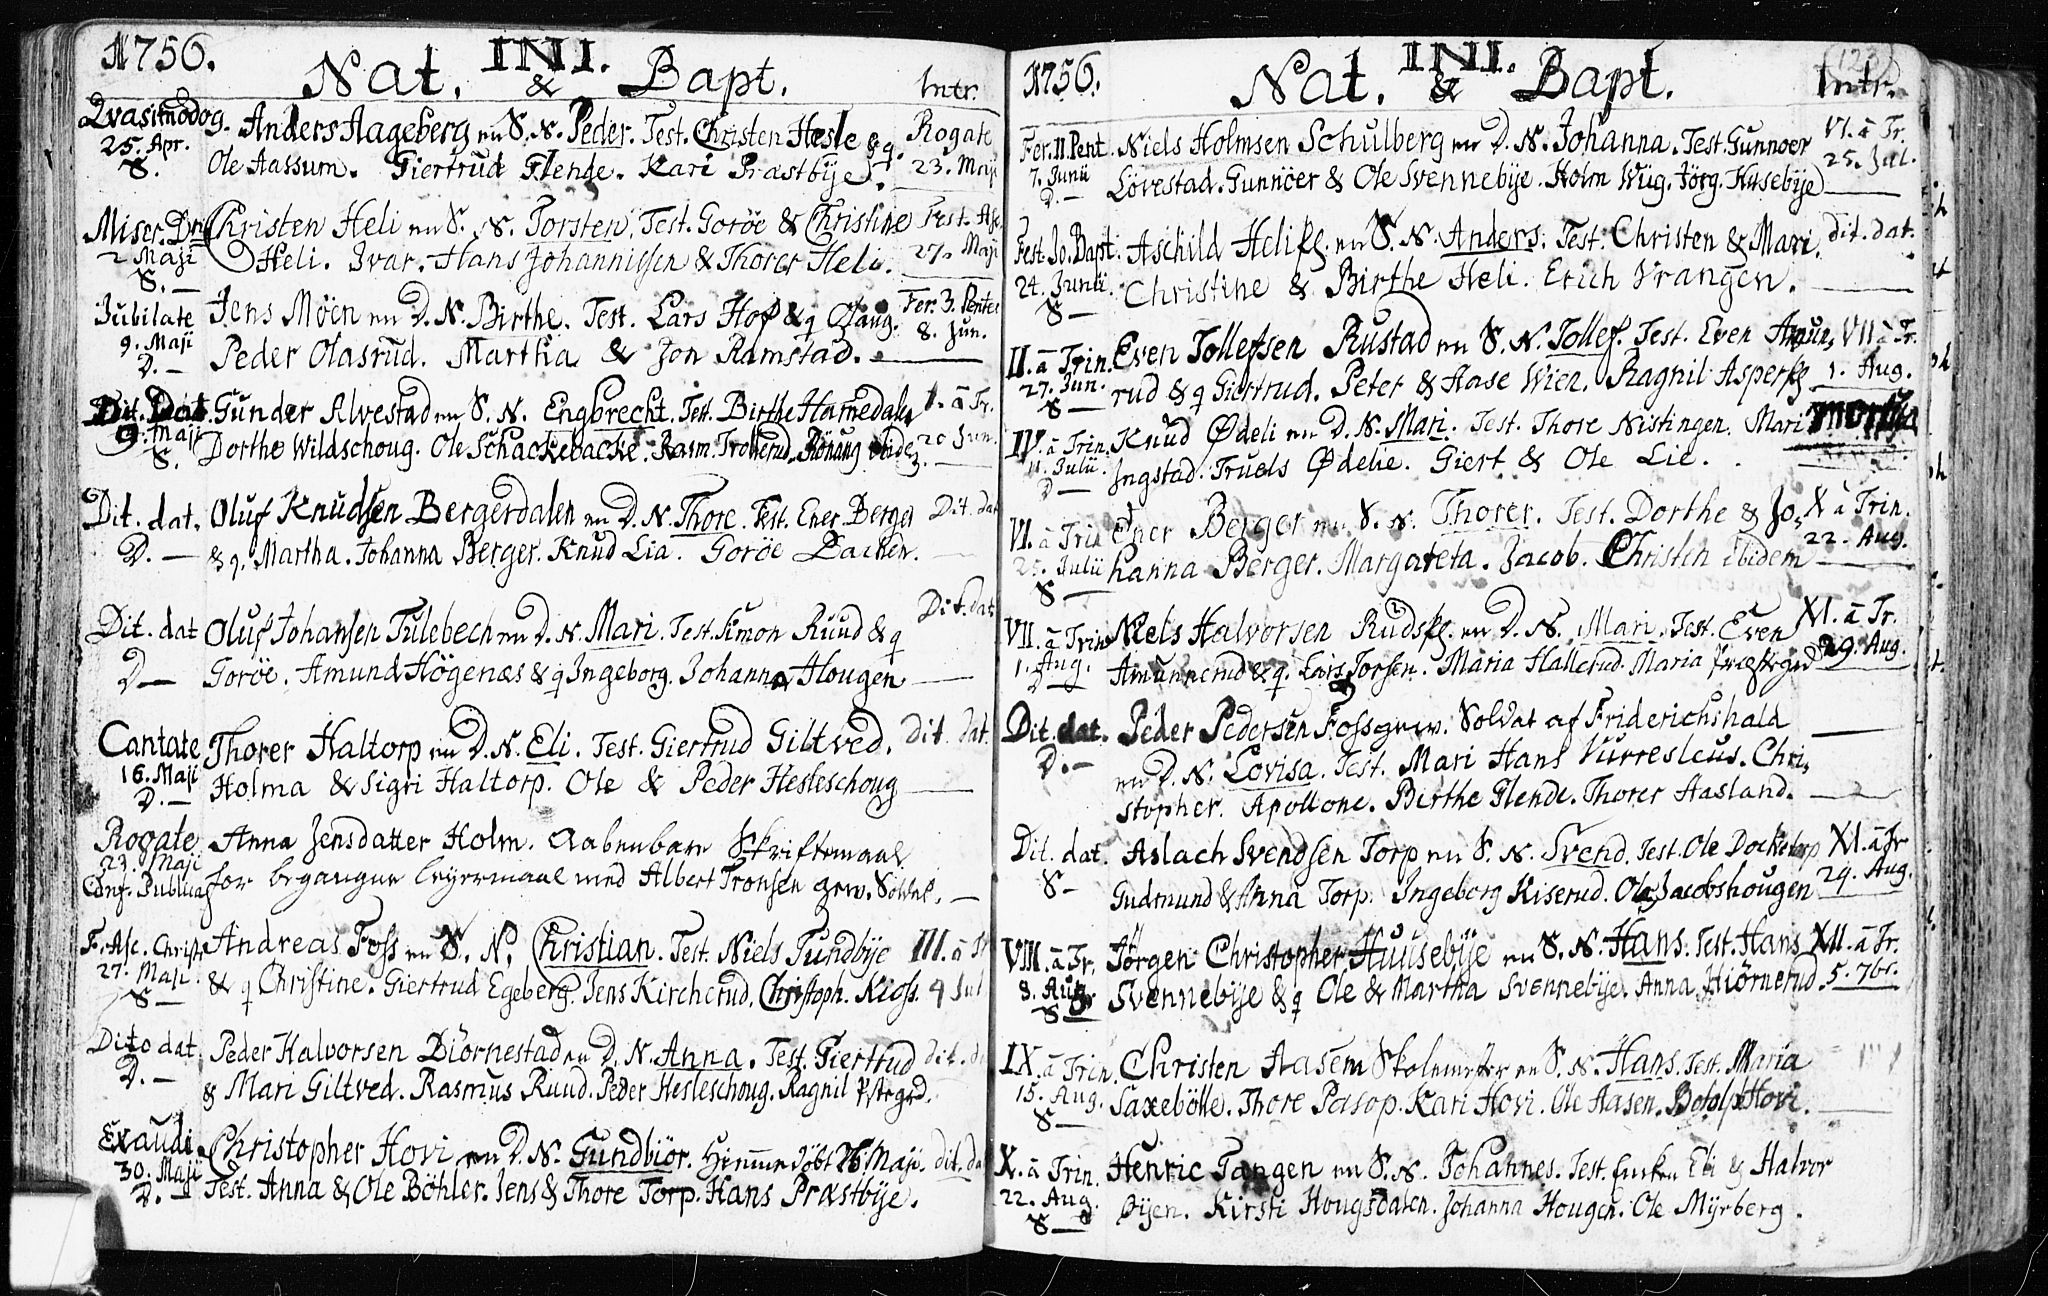 1756. INI.
Nat. & Bapt. Intr.
Qvasimodog. Anders Aageberg en S. N. Peder. Test. Christen Hesle & q. Rogate
25. Apr. Ole Aassum. Giertrud Glende. Kari Præstbÿe. 23. Maji
S.
Miser. Dni Christen Heli en S. N. Torsten. Test. Goröe & Christine Fest. Asc
2 Maji Heli. Ivar. Hans Johannissen & Thorer Heli. 27. Maji
S. —
Jubilate Jens Möen en D. N. Birthe. Test. Lars Hof & q Ofaug. Fer. 3. Pentec
9. Maji Peder Olasrud. Martha & Jon Ramstad. 8. Jun.
D. —
Dit. Dat Gunder Alvestad en S. N. Engbrecht. Test. Birthe Hamedalen 1. à Tr.
9. Maji Dorthe Wildschoug. Ole Schackebacke. Rasm. Trollerud. Rönaug ibidem 20 Jun.
S.
Dit. dat. Oluf Knudsen Bergerdalen en D. N. Thore. Test. Ener Berger Dit. dat
D. — & q. Martha. Johanna Berger. Knud Lia. Goröe Backen.
Dit. dat Oluf Johansen Tulebech en D. N. Mari. Test. Simon Ruud & q Dit. dat
D — Goröe. Amund Högenæs & q Ingeborg. Johanna Hougen
Cantate Thorer Haltorp en D. N. Eli. Test. Giertrud Giltved. Dit. dat.
16. Maji Holma & Sigri Haltorp. Ole & Peder Hesleschoug
D. —
Rogate Anna Jensdatter Holm. Aabenbare Skriftemaal
23. Maji
Conf. Publica for begangne leyermaal med Albert Tronsen gew. Soldat. —
F. Asc. Christi Andreas Foss en S. N. Christian. Test. Niels Tundbÿe III. à Tr
27. Maji. & q Christine. Giertrud Egeberg. Jens Kircherud. Christoph. Kioss. 4 Jul
S —
Dito dat. Peder Halvorsen Biörnestad en D. N. Anna. Test. Giertrud dit. d
D. — & Mari Giltved. Rasmus Ruud. Peder Hesleschoug. Ragnil Pstegrd.
Exaudi Christopher Hovi en D. N. Gundbiör. Hiemme döbt 26 Maji. dit. da
30. Maji Test. Anna & Ole Böhler. Jens & Thore Torp. Hans Præstbÿe.
D. —
1756. INI. (123)
Nat. & Bapt. Intr.
Fer. II. Pent Niels Holmsen Schulberg en D. N. Johanna. Test. Gunnoer VI. à Tr.
7. Junii Lövestad. Gunnoer & Ole Svennebÿe. Holm Wüg. Jörg. Husebÿe 25. Jul.
D. —
Fest. Jo. Bapt. Aschild Helie en S. N. Anders. Test. Christen & Mari. Dit. dat.
24. Junii Christine & Birthe Heli. Erich Vrangen.
S —
II. à Trin. Even Tollefsen Rustad en S. N. Tollef. Test. Even Amun, VII à Tr.
27. Jun. rud & q Giertrud. Peter & Aase Wien. Ragnil Asper 1. Aug.
S —
IV. à Trin. Knud Ødeli en D. N. Mari. Test. Thore Nistingen. Mari
11. Julii. Ingstad. Truels Ødelie. Giert & Ole Lie.
D —
VI. à Trin Ener Berger en S. N. Thorer. Test. Dorthe & Jo, X à Trin.
25. Julii hanna Berger. Margareta. Jacob. Christen ibidem 22. Aug.
S —
VII. à Trin Niels Halvorsen Ruds en D. N. Mari. Test. Even XI. à Tr.
1. Aug. Amunnerud & q. Lars Torsen. Maria Hallerud. Maria Præstegrd 29. Aug.
D —
Dit. dat. Peder Pedersen Foss gew. Soldat af Friderichshald
D. — en D. N. Lovisa. Test. Mari Hans Vurresleus. Chri,
stopher. Apollone. Birthe Glende. Thorer Aasland.
Dit. dat. Aslach Svendsen Torp en S. N. Svend. Test. Ole Dockstorp XI. à Tr
S — Gudmund & Anna Torp. Ingeborg Kiserud. Ole Jacobshougen 29. Aug.
VIII. à Tr. Jörgen Christopher Huusebÿe en S. N. Hans. Test. Hans XII. à Tr.
8. Aug. Svennebÿe & q Ole & Martha Svennebÿe. Anna Hiörnerud. 5. 7br.
S
IX. à Trin. Christen Aasem Skolemester en S. N. Hans. Test. Maria
15. Aug. Saxebölle. Thore Pasop. Kari Hovi. Ole Aasen. Botolp Hovi.
S —
X. à Trin. Henric Tangen en S. N. Johannes. Test. Enken Eli & Halvor
22. Aug. Öÿen. Kirsti Hougsdalen. Johanna Hougen. Ole Mÿrberg.
S —